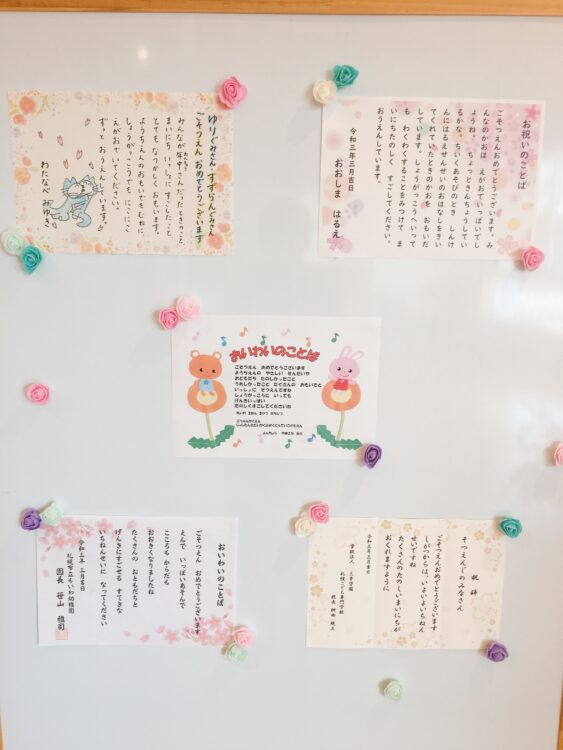 ゆりぐみさん・すずらんぐみさん
ごそつえん おめでとうございます
みんなが年中さんだったときのこと、
まいにち いっしょに すごしたこと、
とても なつかしく おもいます。
ようちえんの おもいでを むねに、
しょうがっこうでも にこにこ
えがおでいてください。
ずっと おうえんしています。
わたなべ みゆき
お祝いのことば
ごそつえんおめでとうございます。み
んなのかおは えがおでいっぱいでし
ょうね。ちょっときんちょうしてい
るかな。ちいくあそびのとき しんけ
んにはるえせんせいのおはなしをきい
てくれていたときのかおを おもいだ
しています。しょうがっこうへいって
も わくわくすることをみつけて ま
いにちたのしく すごしてください。
おうえんしています。
令和三年三月吉日
おおしま はるえ
おいわいのことば
ごそつえん おめでとうございます
ようちえんの やさしい せんせいや
おともだち たのしかったこと
うれしかったこと たくさんの おもいでと
いっしょに そつえんですね
しょうがっこうに いっても
げんきいっぱい
たのしくすごしてくださいね
おいわいのことば
ごそつえん おめでとうございます
えんで いっぱいあそんで
こころも からだも
おおきくなりましたね
たくさんの おともだちと
げんきにすごせる すてきな
いちねんせいに なってください
令和三年 三月吉日
園長 笹山 雅司
祝辞
そつえんじのみなさん
ごそつえんおめでとうございます
しがつからは、いよいよいちねん
せいですね
たくさんのたのしいまいにちが
おくれますように
令和三年三月吉日